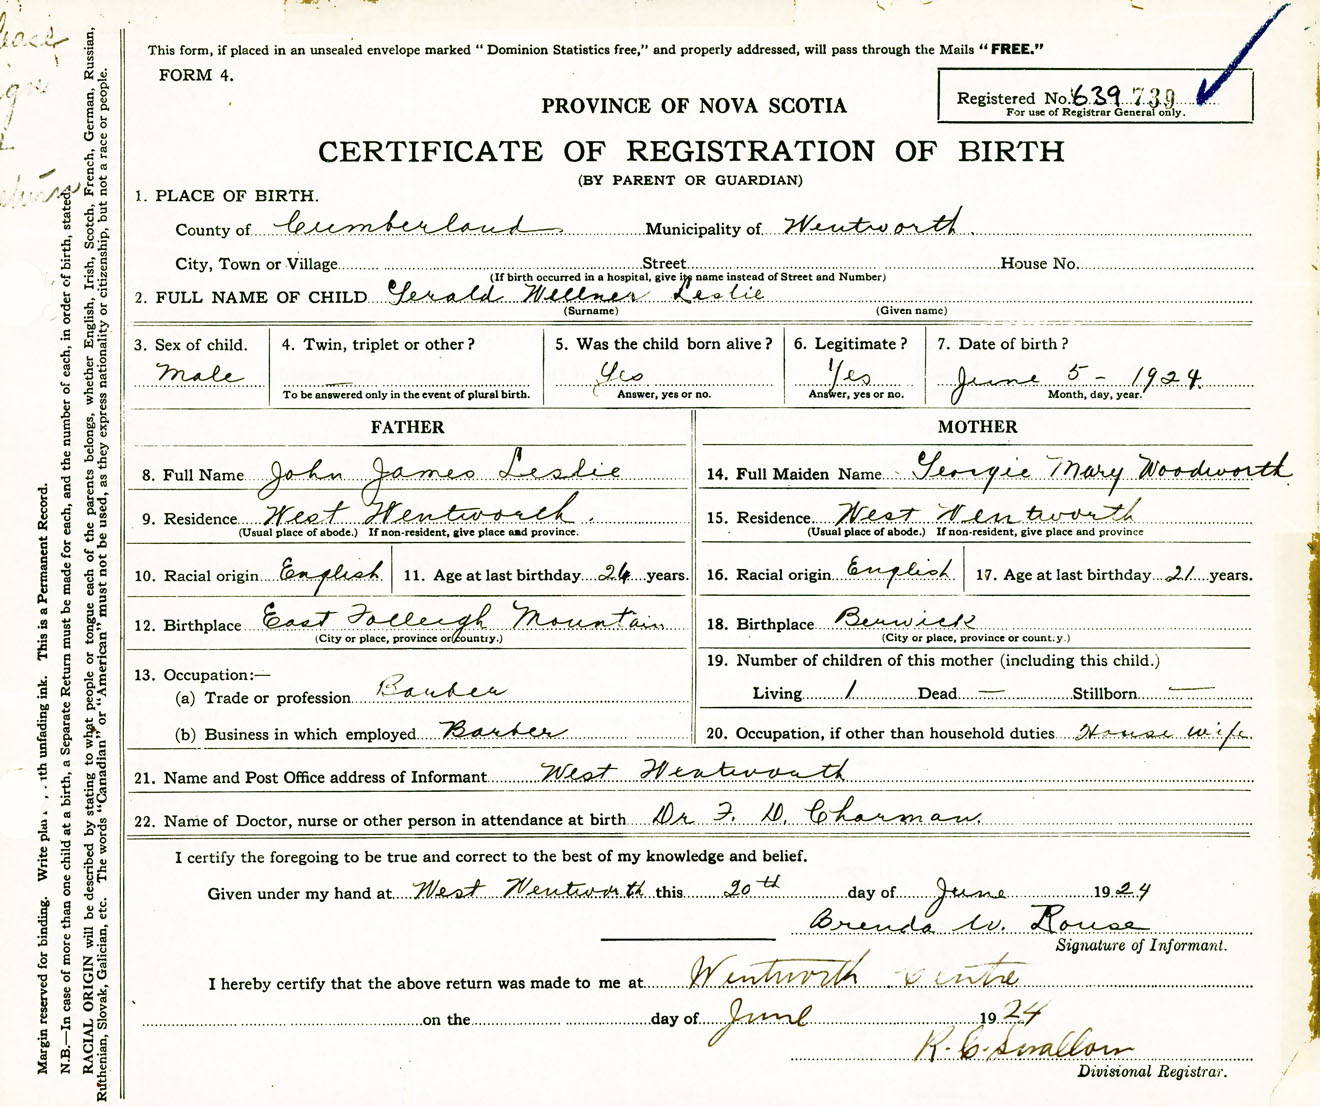 This form, if placed in an unsealed envelope marked “ Dominion Statistics free,” and properly addressed, will pass through the Mails “ FREE.”
FORM 4.
Registered No. 639 739
For use of Registrar General only.
PROVINCE OF NOVA SCOTIA
CERTIFICATE OF REGISTRATION OF BIRTH
(BY PARENT OR GUARDIAN)
1. PLACE OF BIRTH.
County of Cumberland Municipality of Wentworth.
City, Town or Village Street House No.
(If birth occurred in a hospital, give its name instead of Street and Number)
2. FULL NAME OF CHILD Gerald Wellner Leslie
(Surname) (Given name)
3. Sex of child. 4. Twin, triplet or other ? 5. Was the child born alive ? 6. Legitimate ? 7. Date of birth ?
Male — Yes Yes June 5 - 1924
To be answered only in the event of plural birth. Answer, yes or no. Answer, yes or no. Month, day, year.
FATHER MOTHER
8. Full Name John James Leslie 14. Full Maiden Name Georgie Mary Woodworth
9. Residence West Wentworth. 15. Residence West Wentworth
(Usual place of abode.) If non-resident, give place and province. (Usual place of abode.) If non-resident, give place and province
10. Racial origin English 11. Age at last birthday 24 years. 16. Racial origin English 17. Age at last birthday 21 years.
12. Birthplace East Folleigh Mountain 18. Birthplace Berwick
(City or place, province or country.) (City or place, province or country.)
13. Occupation:— 19. Number of children of this mother (including this child.)
(a) Trade or profession Barber Living 1 Dead — Stillborn —
(b) Business in which employed Barber 20. Occupation, if other than household duties House wife.
21. Name and Post Office address of Informant West Wentworth
22. Name of Doctor, nurse or other person in attendance at birth Dr F. D. Charman.
I certify the foregoing to be true and correct to the best of my knowledge and belief.
Given under my hand at West Wentworth this 20th day of June 1924
Brenda W. Rouse
Signature of Informant.
I hereby certify that the above return was made to me at Wentworth Centre
on the day of June 1924
R. C. Swallow
Divisional Registrar.
Margin reserved for binding. Write with unfading ink. This is a Permanent Record.
N.B.—In case of more than one child at a birth, a Separate Return must be made for each, and the number of each, in order of birth, stated.
RACIAL ORIGIN will be described by stating to what people or tongue each of the parents belongs, whether English, Irish, Scotch, French, German, Russian,
Ruthenian, Slovak, Galician, etc. The words “Canadian” or “American” must not be used, as they express nationality or citizenship, but not a race or people.